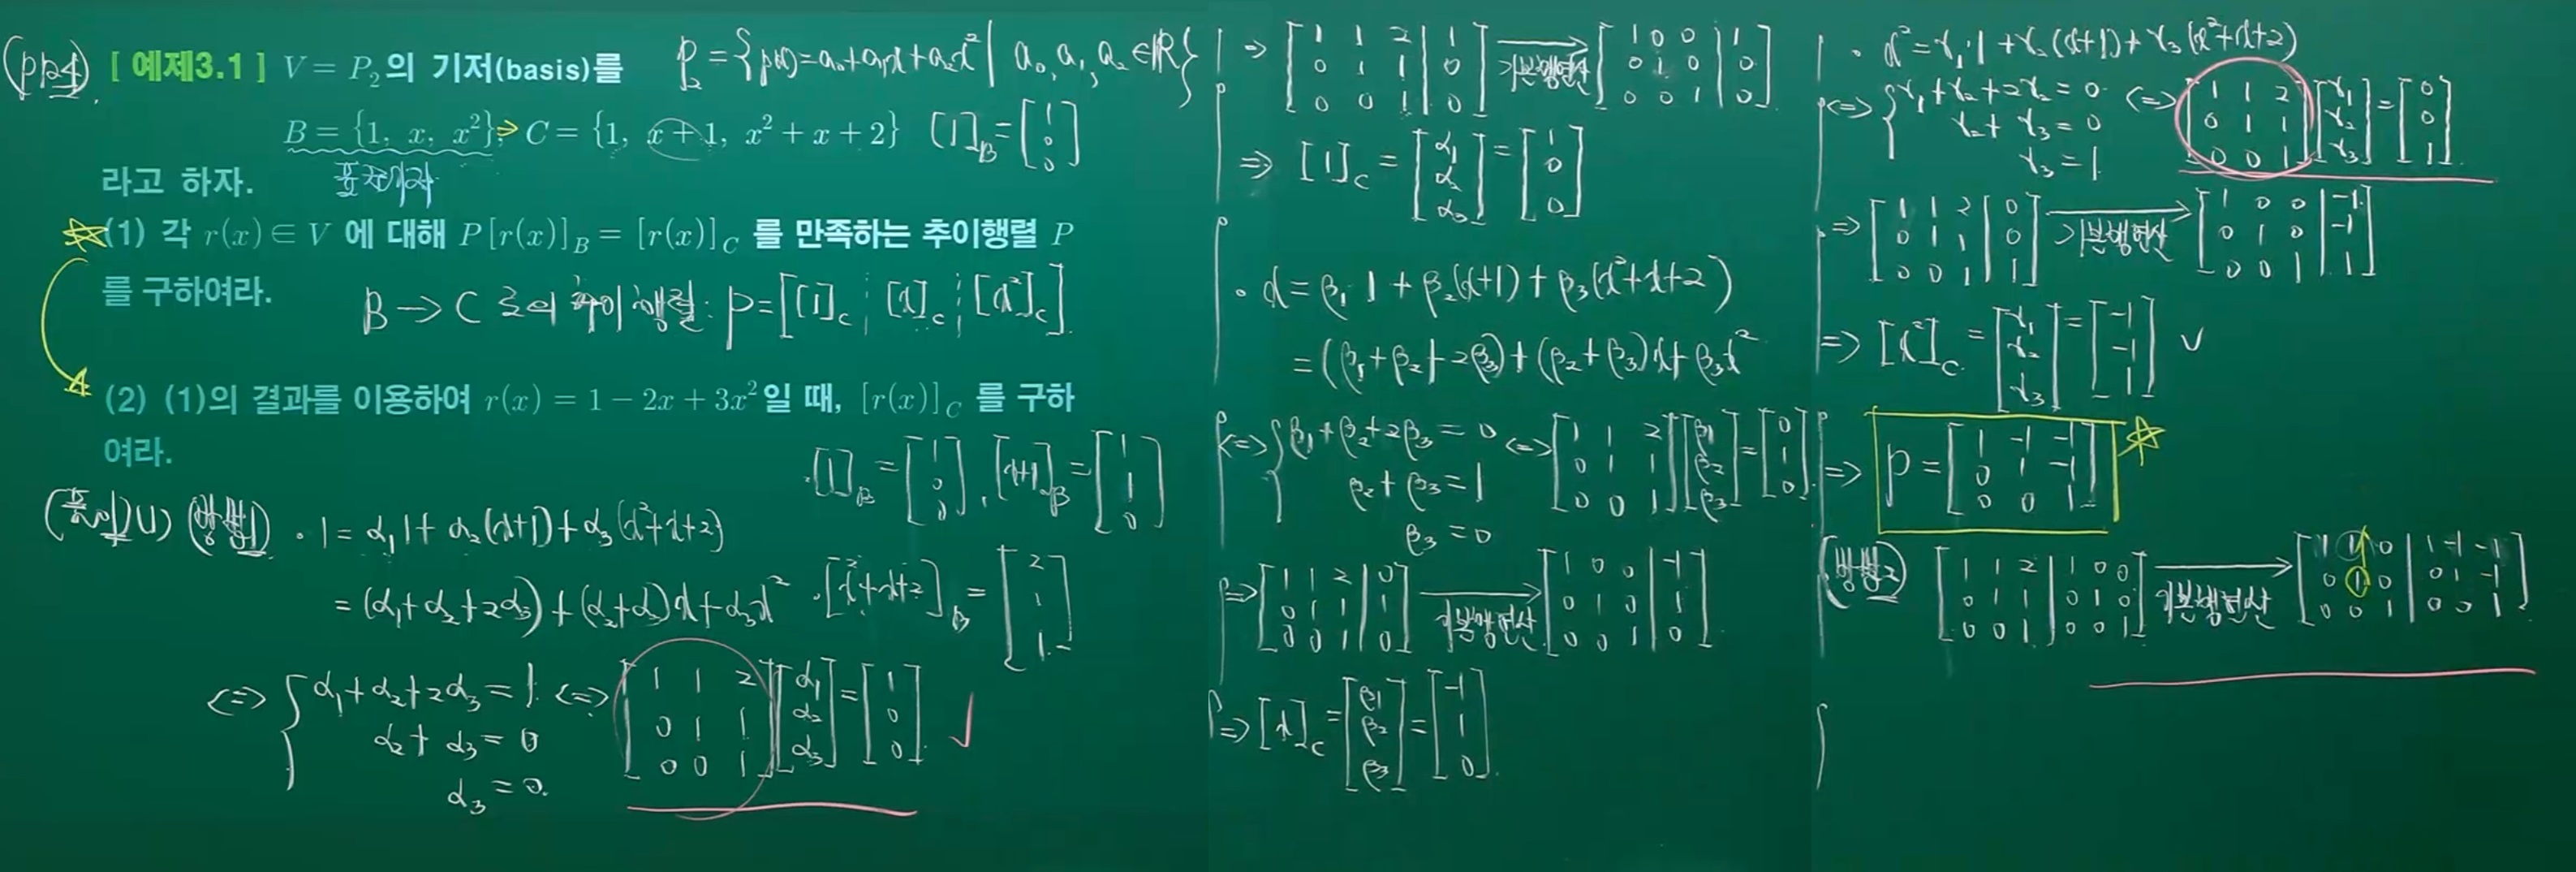 (P124) [ 예제3.1 ] V = P₂의 기저(basis)를 P₂ = {p(x)=a₀+a₁x+a₂x² | a₀, a₁, a₂ ∈ ℝ}
B = {1, x, x²}, ⇒ C = {1, x+1, x²+x+2} [1]_B = [1; 0; 0]
표준기저
라고 하자.
☆(1) 각 r(x) ∈ V 에 대해 P[r(x)]_B = [r(x)]_C 를 만족하는 추이행렬 P
를 구하여라.
B → C 로의 추이행렬: P = [[1]_C ⋮ [x]_C ⋮ [x²]_C]
(2) (1)의 결과를 이용하여 r(x) = 1 − 2x + 3x² 일 때, [r(x)]_C 를 구하
여라.
·[1]_B = [1; 0; 0], [x+1]_B = [1; 1; 0]
(풀이)(1) (방법1) · 1 = α₁1 + α₂(x+1) + α₃(x²+x+2)
= (α₁+α₂+2α₃) + (α₂+α₃)x + α₃x²
·[x²+x+2]_B = [2; 1; 1]
<=> { α₁+α₂+2α₃ = 1 <=> [1 1 2; 0 1 1; 0 0 1][α₁; α₂; α₃] = [1; 0; 0] √
α₂+α₃ = 0
α₃ = 0.
⇒ [1 1 2 | 1; 0 1 1 | 0; 0 0 1 | 0] → 기본행연산 [1 0 0 | 1; 0 1 0 | 0; 0 0 1 | 0]
⇒ [1]_C = [α₁; α₂; α₃] = [1; 0; 0]
· x = β₁·1 + β₂(x+1) + β₃(x²+x+2)
= (β₁+β₂+2β₃) + (β₂+β₃)x + β₃x²
<=> { β₁+β₂+2β₃ = 0 <=> [1 1 2; 0 1 1; 0 0 1][β₁; β₂; β₃] = [0; 1; 0]
β₂+β₃ = 1
β₃ = 0
⇒ [1 1 2 | 0; 0 1 1 | 1; 0 0 1 | 0] → 기본행연산 [1 0 0 | -1; 0 1 0 | 1; 0 0 1 | 0]
⇒ [x]_C = [β₁; β₂; β₃] = [-1; 1; 0]
· x² = γ₁·1 + γ₂(x+1) + γ₃(x²+x+2)
<=> { γ₁+γ₂+2γ₂ = 0 <=> [1 1 2; 0 1 1; 0 0 1][γ₁; γ₂; γ₃] = [0; 0; 1]
γ₂+γ₃ = 0
γ₃ = 1.
⇒ [1 1 2 | 0; 0 1 1 | 0; 0 0 1 | 1] → 기본행연산 [1 0 0 | -1; 0 1 0 | -1; 0 0 1 | 1]
⇒ [x²]_C = [γ₁; γ₂; γ₃] = [-1; -1; 1] √
⇒ P = [1 -1 -1; 0 1 -1; 0 0 1] ☆
(방법2) [1 1 2 | 1 0 0; 0 1 1 | 0 1 0; 0 0 1 | 0 0 1] → 기본행연산 [1 1 0 | 1 -1 -1; 0 1 0 | 0 1 -1; 0 0 1 | 0 0 1]